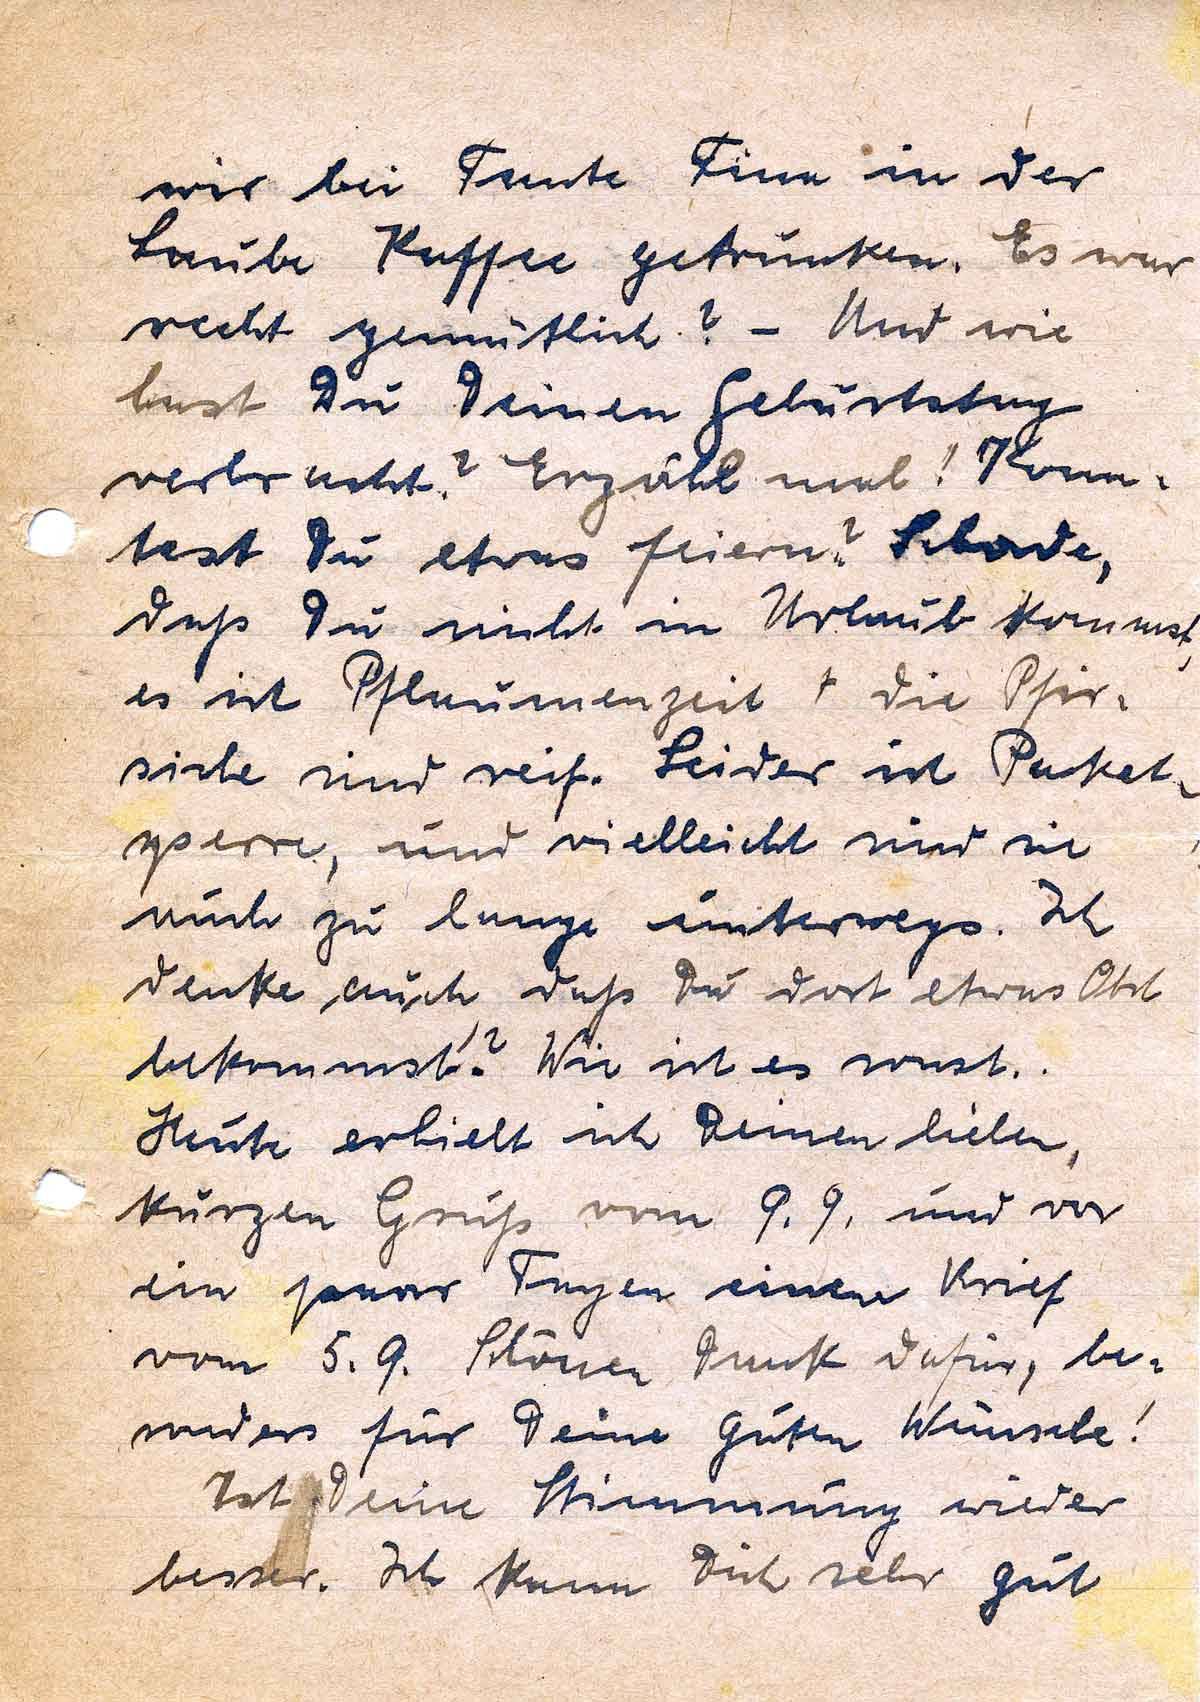 wir bei Tante Fina in der
Laube Kaffee getrunken. Es war
recht gemütlich? – Und wie
hast Du Deinen Geburtstag
verbracht? Erzähl mal! Konn-
test Du etwas feiern? Schade,
daß Du nicht in Urlaub kommst,
es ist Pflaumenzeit + die Pfir-
siche sind reif. Leider ist Paket-
sperre, und vielleicht sind sie
auch zu lange unterwegs. Ich
denke auch daß Du dort etwas Obst
bekommst!? Wie ist es sonst..
Heute erhielt ich Deinen lieben,
kurzen Gruß vom 9. 9. und vor
ein paar Tagen einen Brief
vom 5. 9. Schönen Dank dafür, be-
sonders für Deine guten Wünsche!
Ist Deine Stimmung wieder
besser. Ich kann Dich sehr gut